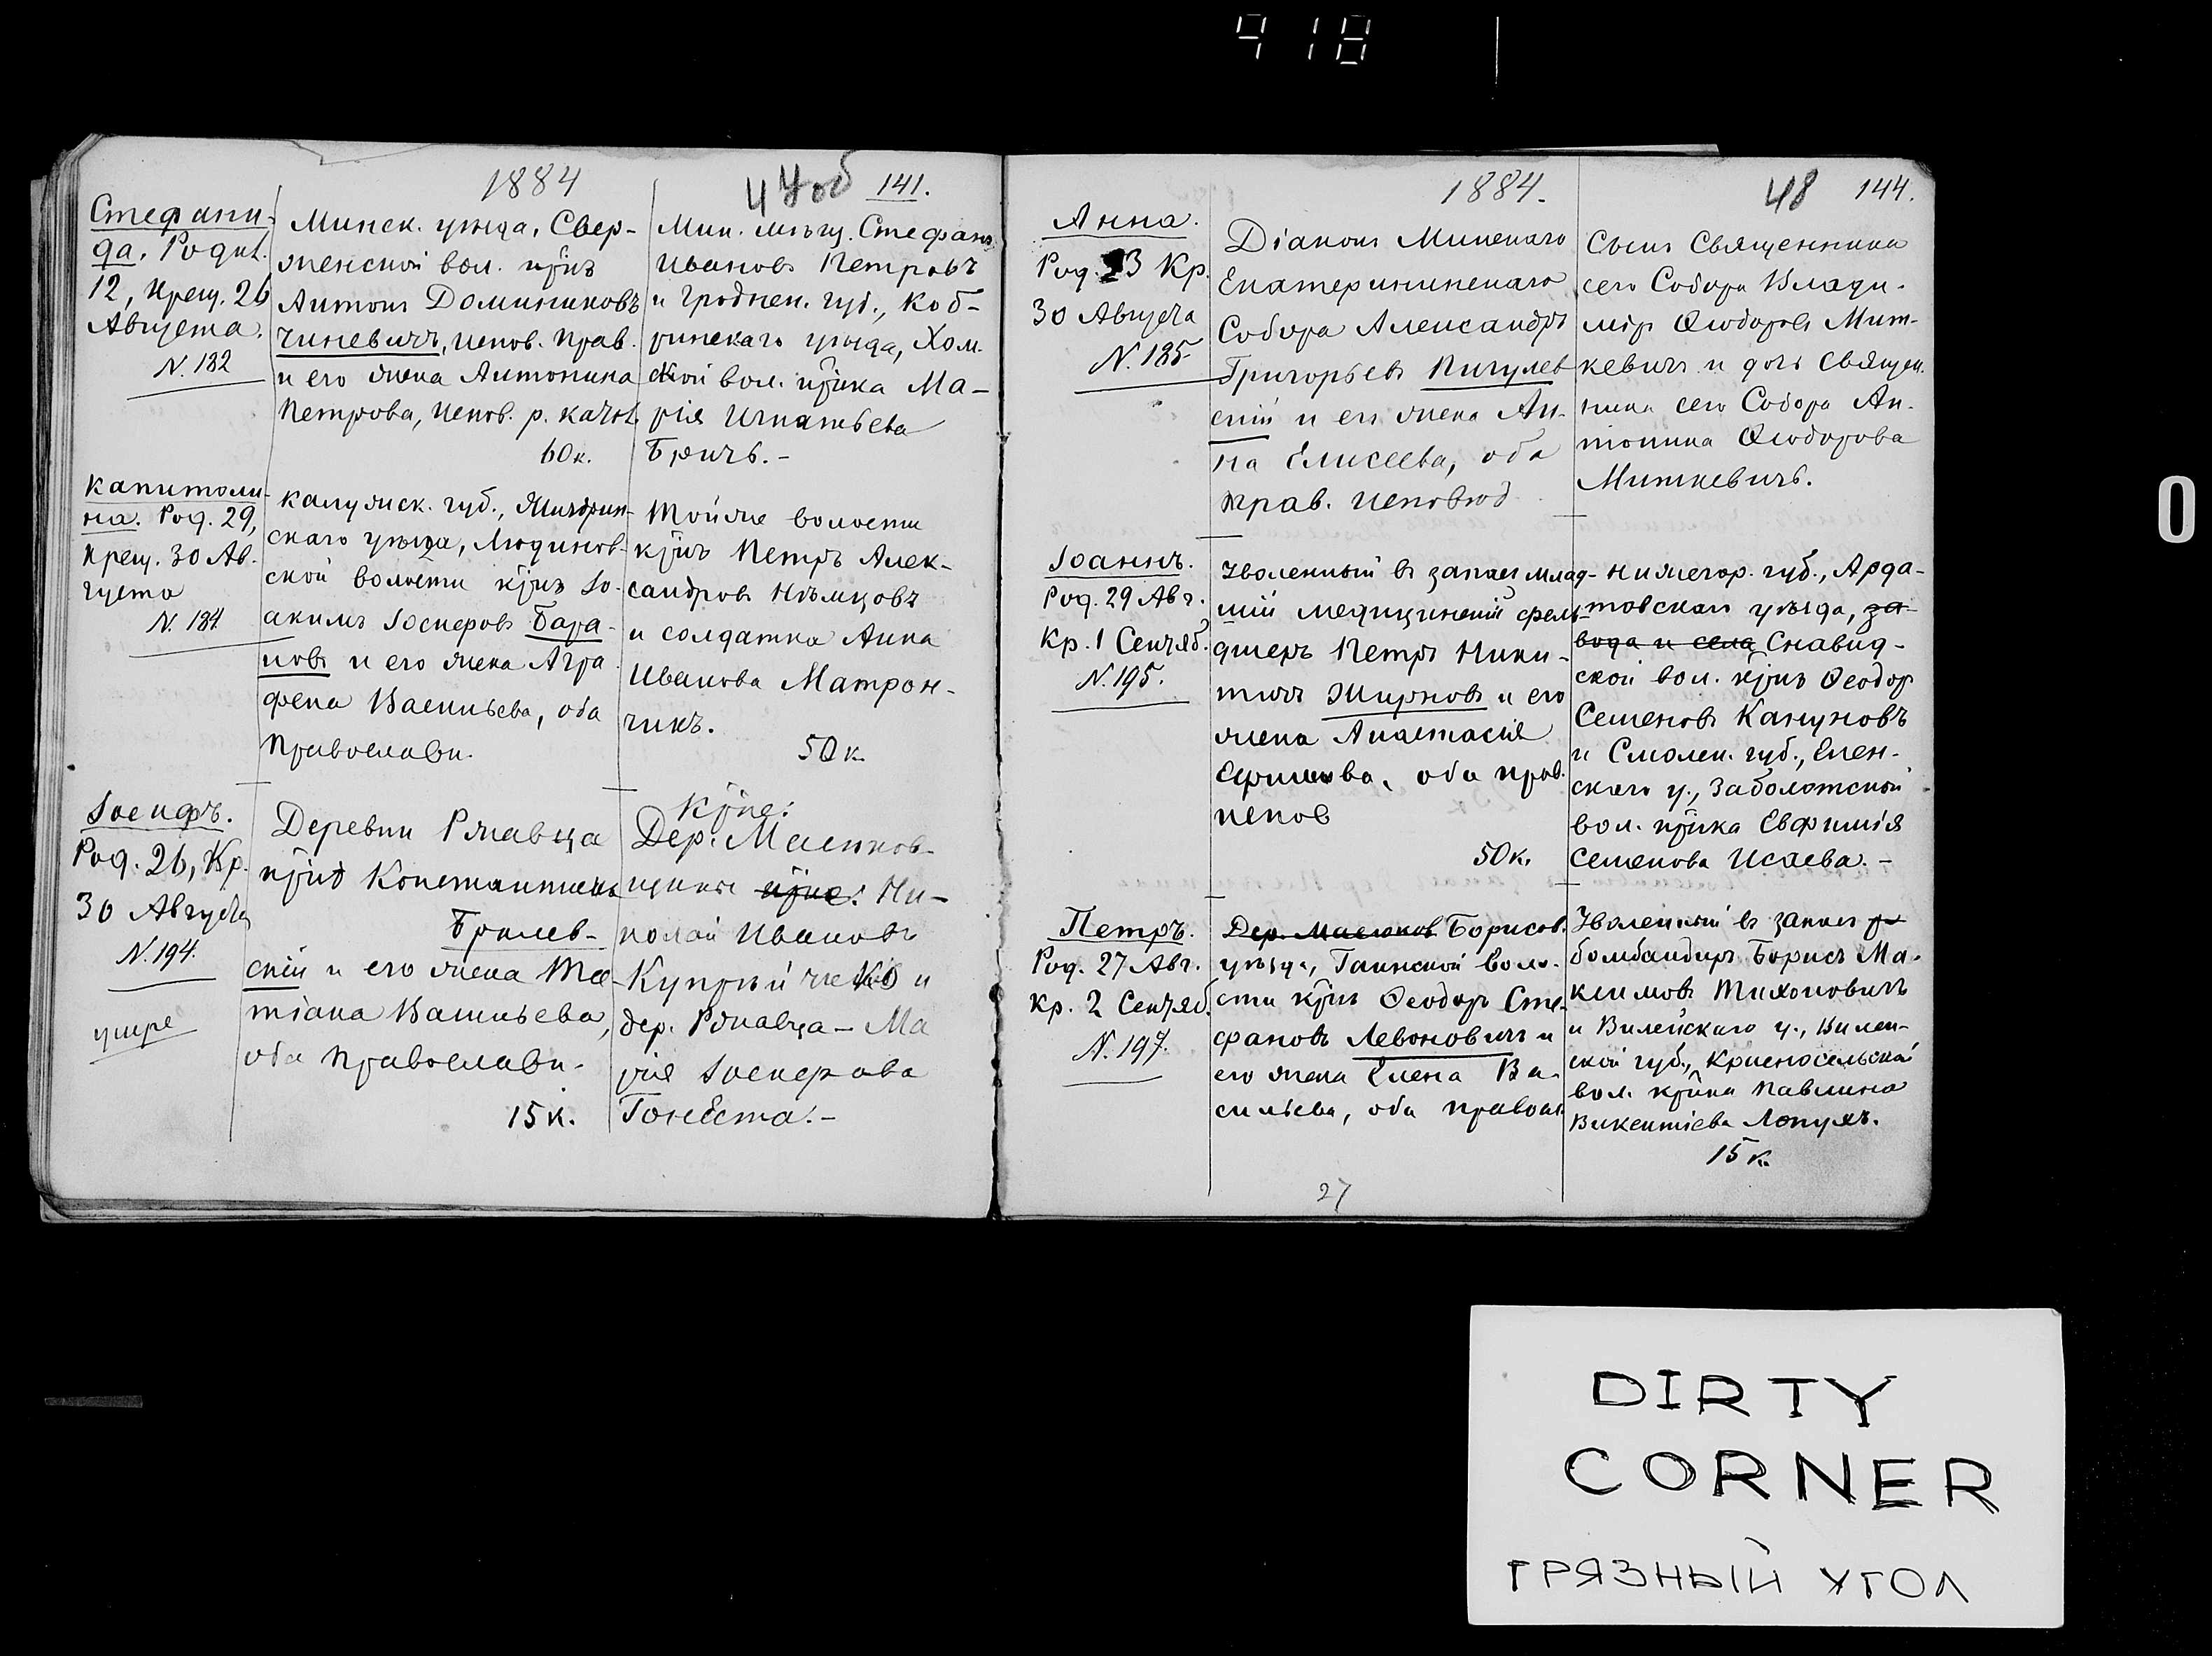 418
1884
47об 141.
Стефани-
да. Родил.
12, крещ. 26
Августа.
N. 182
Минск. уѣзда, Свер-
женской вол. кр̃нъ
Антонъ Доминиковъ
чиневичъ, испов. прав.
и его жена Антонина
Петрова, испов. р. катол.
60 к.
Мин. мѣщ. Стефанъ
Ивановъ Петровъ
и Гроднен. губ., Коб-
ринскаго уѣзда, Хом-
ской вол. кр̃нка Ма-
рія Игнатьева
Бричъ. -
Капитоли-
на. Род. 29,
Крещ. 30 Ав-
густа
N. 184
Калужск. губ., Жиздрин-
скаго уѣзда, Людинов-
ской волости кр̃нъ Іо-
акимъ Іосифовъ Бара-
новъ и его жена Агра-
фена Васильева, оба
православн.
Той же волости
кр̃нъ Петръ Алек-
сандровъ Нѣмцовъ
и солдатка Анна
Иванова Матрон-
чикъ.
50 к.
Іосифъ.
Род. 26, Кр.
30 Августа
N. 194.
умре
Деревни Ржавца
кр̃нъ Константинъ
Бралев-
скій и его жена Та-
тіана Васильева,
оба православн.
15 к.
кр̃не:
Дер. Масюков-
щины кр̃не: Ни-
колай Ивановъ
Купрѣйчикъ и
дер. Ржавца - Ма
рія Іосифова
Гонёста. -
1884.
48 144.
Анна.
Род. 23 Кр.
30 Августа
N. 185
Діаконъ Минскаго
Екатерининскаго
Собора Александръ
Григорьевъ Пигулев
скій и его жена Ан-
на Елисеева, оба
прав. исповѣд
Сынъ Священника
сего Собора Влади-
міръ Ѳеодоровъ Мит-
кевичъ и дочь Священ-
ника сего Собора Ан-
тонина Ѳеодорова
Миткевичъ.
Іоаннъ.
Род. 29 Авг.
Кр. 1 Сентяб.
N. 195.
Уволенный въ запасъ млад-
шій медицинскій фель-
дшеръ Петръ Ники-
тичъ Жирновъ и его
жена Анастасія
Ефимова, оба прав.
испов
50 к.
Нижегор. губ., Арда-
товскаго уѣзда, за-
вода и села Снавид-
ской вол. кр̃нъ Ѳеодор
Семеновъ Кануновъ
и Смолен. губ., Елен-
скаго у., Заболотской
вол. кр̃нка Евфимія
Семенова Исаева. -
Петръ.
Род. 27 Авг.
Кр. 2 Сентяб.
N. 197.
Дер. Масюков Борисов.
уѣзда, Гаинской воло-
сти кр̃нъ Ѳеодоръ Сте-
фановъ Левоновичъ и
его жена Елена Ва-
сильева, оба правосл.
Уволенный въ запасъ
бомбандиръ Борисъ Ма-
ксимовъ Тихоновичъ
и Вилейскаго у., Вилен-
ской губ., Красносельской
вол. кр̃нка Павлина
Викентіева Лопухъ.
15 к.
27
0
DIRTY
CORNER
ГРЯЗНЫЙ УГОЛ